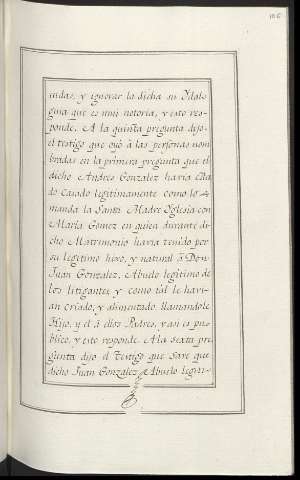 106
indas, y ignorar la dicha su Ydals
guia que es mui notoria, y esto res-
ponde. A la quinta pregunta dijo
el testigo que oyó à las personas nom
bradas en la primera pregunta que el
dicho Andres Gonzalez havia esta
do Casado legitimamente como lo
manda la Santa Madre Yglesia con
Maria Gomez en quien durante di
cho Matrimonio havia tenido por
su legitimo hijo, y natural â Don
Juan Gonzalez, Abuelo legitimo de
los litigantes y como tál le havi-
an Criado, y alimentado llamandole
Hijo, y él â ellos Padres, y asi es pu-
blico, y esto responde. A la sexta pre
gunta dijo el Testigo que save que
dicho Juan Gonzalez Abuelo legiti-